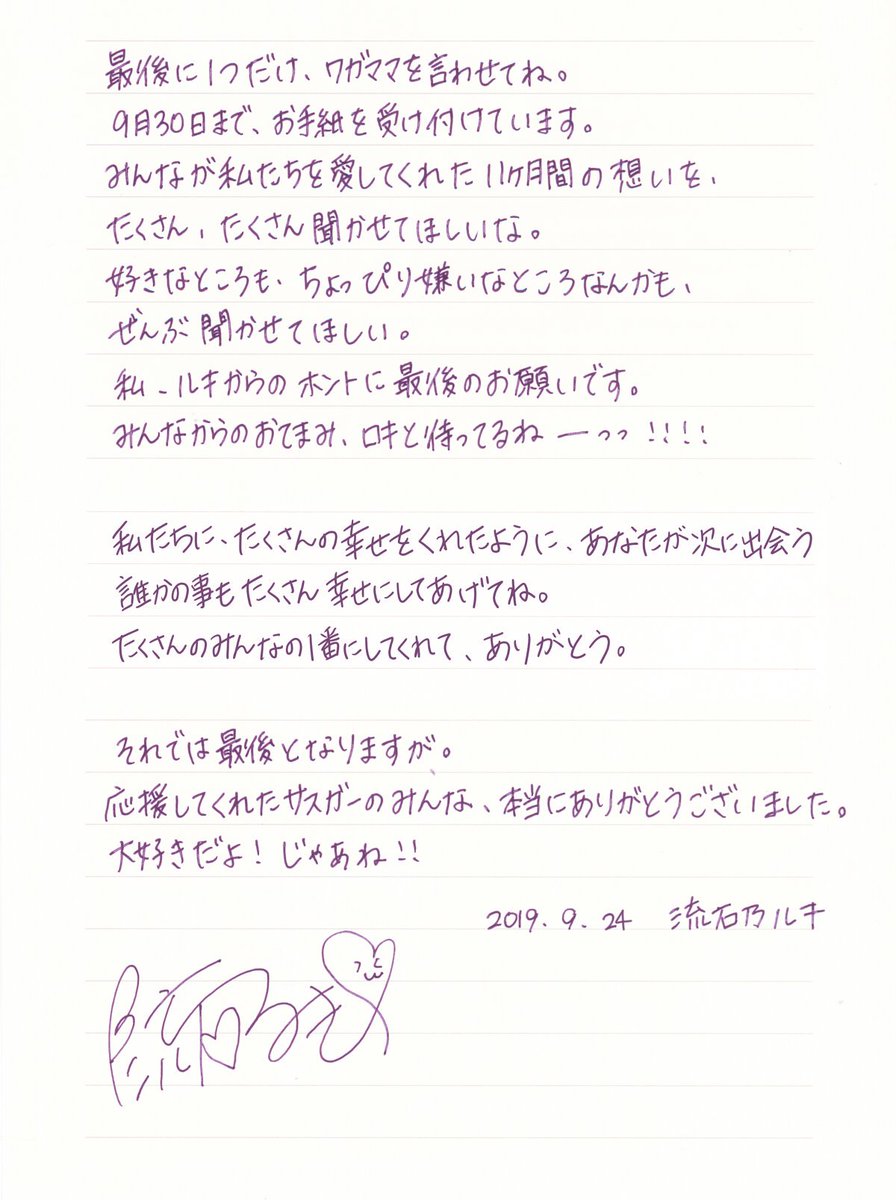 最後に1つだけ、ワガママを言わせてね。
9月30日まで、お手紙を受け付けています。
みんなが私たちを愛してくれた11ヶ月間の想いを、
たくさん、たくさん聞かせてほしいな。
好きなところも、ちょっぴり嫌いなところなんかも、
ぜんぶ聞かせてほしい。
私、ルキからのホントに最後のお願いです。
みんなからのおてまみ、ロキと待ってるねーっっ!!!!
私たちに、たくさんの幸せをくれたように、あなたが次に出会う
誰かの事もたくさん幸せにしてあげてね。
たくさんのみんなの1番にしてくれて、ありがとう。
それでは最後となりますが。
応援してくれたサスガーのみんな、本当にありがとうございました。
大好きだよ!じゃあね!!
2019.9.24 流石乃ルキ